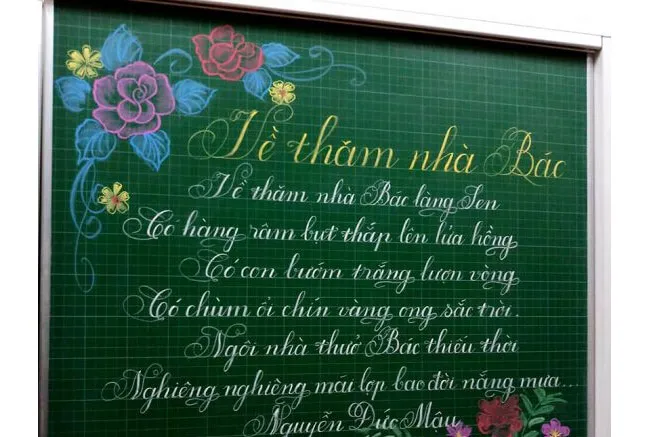 Về thăm nhà Bác
Về thăm nhà Bác làng Sen
Có hàng râm bụt thắp lên lửa hồng
Có con bướm trắng lượn vòng
Có chùm ổi chín vàng ong sắc trời.
Ngôi nhà thuở Bác thiếu thời
Nghiêng nghiêng mái lợp bao đời nắng mưa...
Nguyễn Đức Mậu